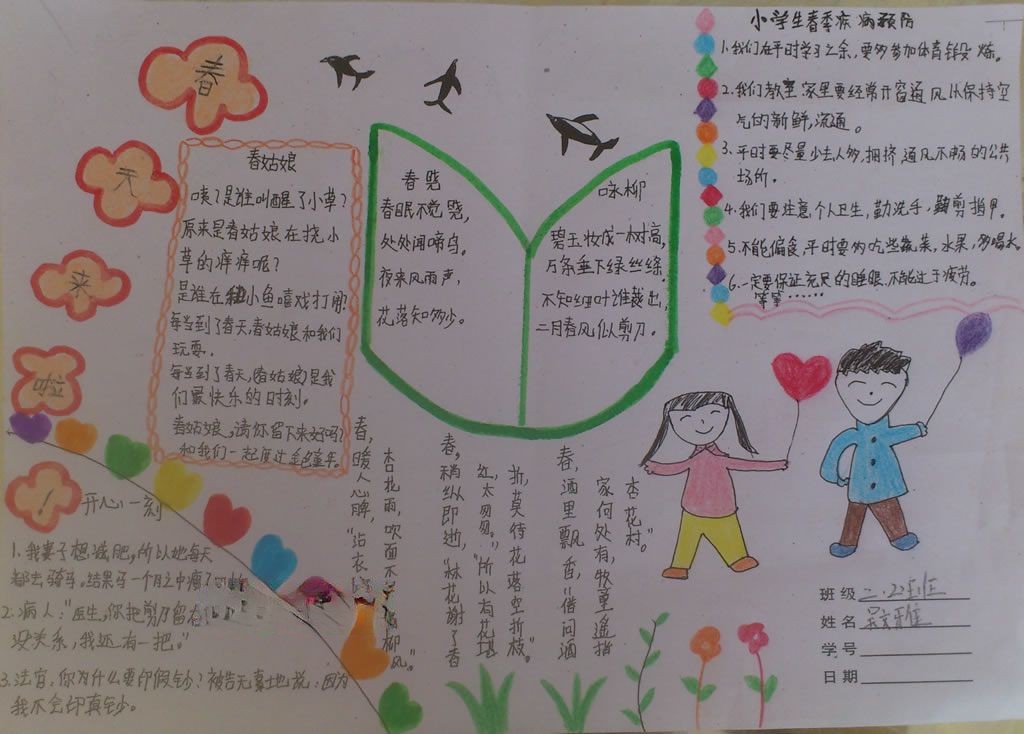 春
天
来
啦
!
春姑娘
咦?是谁叫醒了小草?
原来是春姑娘在挠小
草的痒痒呢?
是谁在和小鱼嘻戏打闹
每当到了春天,春姑娘和我们
玩耍.
每当到了春天,(春姑娘)是我
们最快乐的时刻.
春姑娘,请你留下来好吗?
和我们一起度过金色童年.
春晓
春眠不觉晓,
处处闻啼鸟.
夜来风雨声,
花落知多少.
咏柳
碧玉妆成一树高,
万条垂下绿丝绦.
不知细叶谁裁出,
二月春风似剪刀.
小学生春季疾病预防
1.我们在平时学习之余,要多参加体育锻炼。
2.我们教室家里要经常开窗通风从保持空
气的新鲜,流通。
3.平时要尽量少去人多,拥挤,通风不畅的公共
场所.
4.我们要注意,个人卫生,勤洗手,勤剪指甲.
5.不能偏食,平时要多吃些蔬菜,水果,多喝水
6.一定要保证充足的睡眠,不能过于疲劳。
等等……
开心一刻
1.我妻子想减肥,所以她每天
都去骑马,结果马一个月之中瘦了
2.病人:"医生,你把剪刀留在
没关系,我还有一把."
3.法官,你为什么要印假钞?被告无辜地说:因为
我不会印真钞。
春,暖人心脾,"沾衣
杏花雨,吹面不 杨柳风。"
春,稍纵即逝,"林花谢了春
红,太匆匆。"所以"有花堪
折,莫待花落空折枝。"
春,酒里飘香,"借问酒
家何处有,牧童遥指
杏花村。"
班级 二.22班
姓名
学号
日期